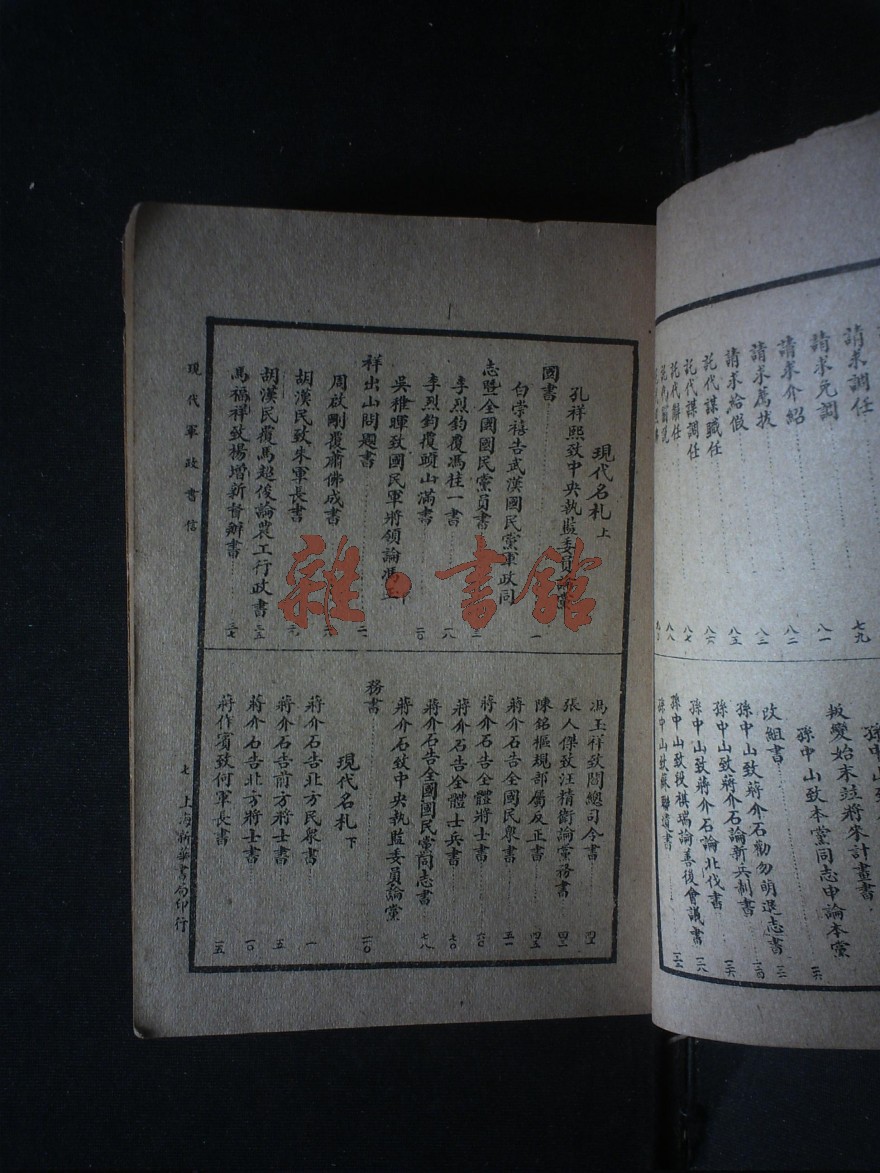 請求調任
七九
請求免調
八一
請求介紹
八二
請求薦拔
八三
請求給假
八五
託代謀職任
八六
託代謀調任
八七
託代辭任
八八
叛變始末並將來計畫書
孫中山致本黨同志申論本黨
改組書
孫中山致蔣介石勸勿萌退志書
孫中山致蔣介石論新兵制書
孫中山致蔣介石論北伐書
孫中山致段祺瑞論善後會議書
孫中山致蘇聯遺書
現代名札 上
孔祥熙致中央執監委員論黨
國書
一
白崇禧告武漢國民黨軍政同
志暨全國國民黨員書
李烈鈞覆馮桂一書
一八
李烈鈞覆頭山滿書
二〇
吳稚暉致國民軍將領論馮玉
祥出山問題書
周啟剛覆蕭佛成書
胡漢民致朱軍長書
胡漢民覆馬超俊論農工行政書
馬福祥致楊增新督辦書
馮玉祥致閻總司令書
張人傑致汪精衛論黨務書
陳銘樞規部屬反正書
四五
蔣介石告全國民衆書
五一
蔣介石告全體將士書
六〇
蔣介石告全體士兵書
七〇
蔣介石告全國國民黨同志書
七八
蔣介石致中央執監委員論黨
務書
一〇
現代名札 下
蔣介石告北方民衆書
一
蔣介石告前方將士書
五
蔣介石告北方將士書
一〇
蔣作賓致何軍長書
一五
現代軍政書信
七
上海新華書局印行
雜·書館